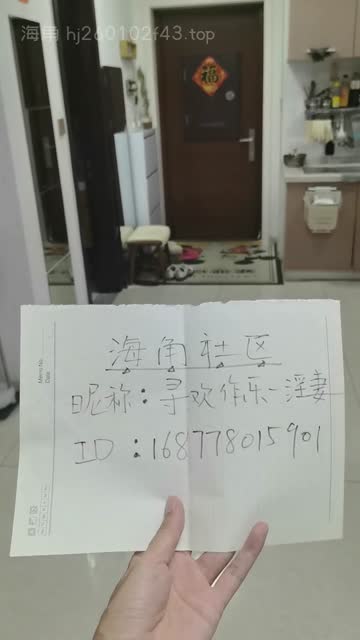 海角 hj260102f43.top
福
海角社区
昵称：寻欢作乐-淫妻
ID：168778015901
Memo No.
Date